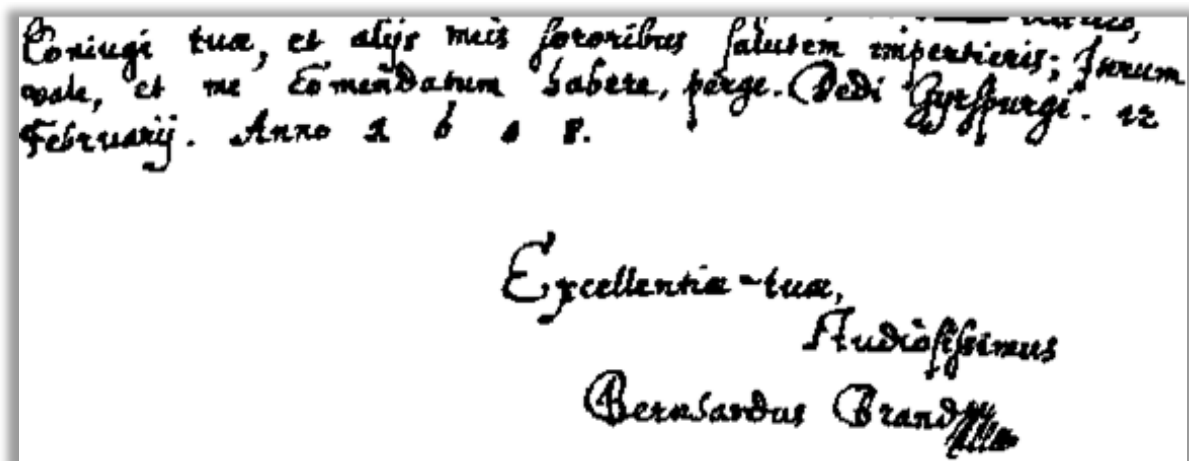 Coniugi tuæ, et alijs meis sororibus salutem impertieris; Iterum
vale, et me Comendatum habere, perge. Dedi Gyrspurgi. 12
Februarij. Anno 1 6 1 8.
Excellentiæ tuæ,
Studiosissimus
Bernhardus Brand